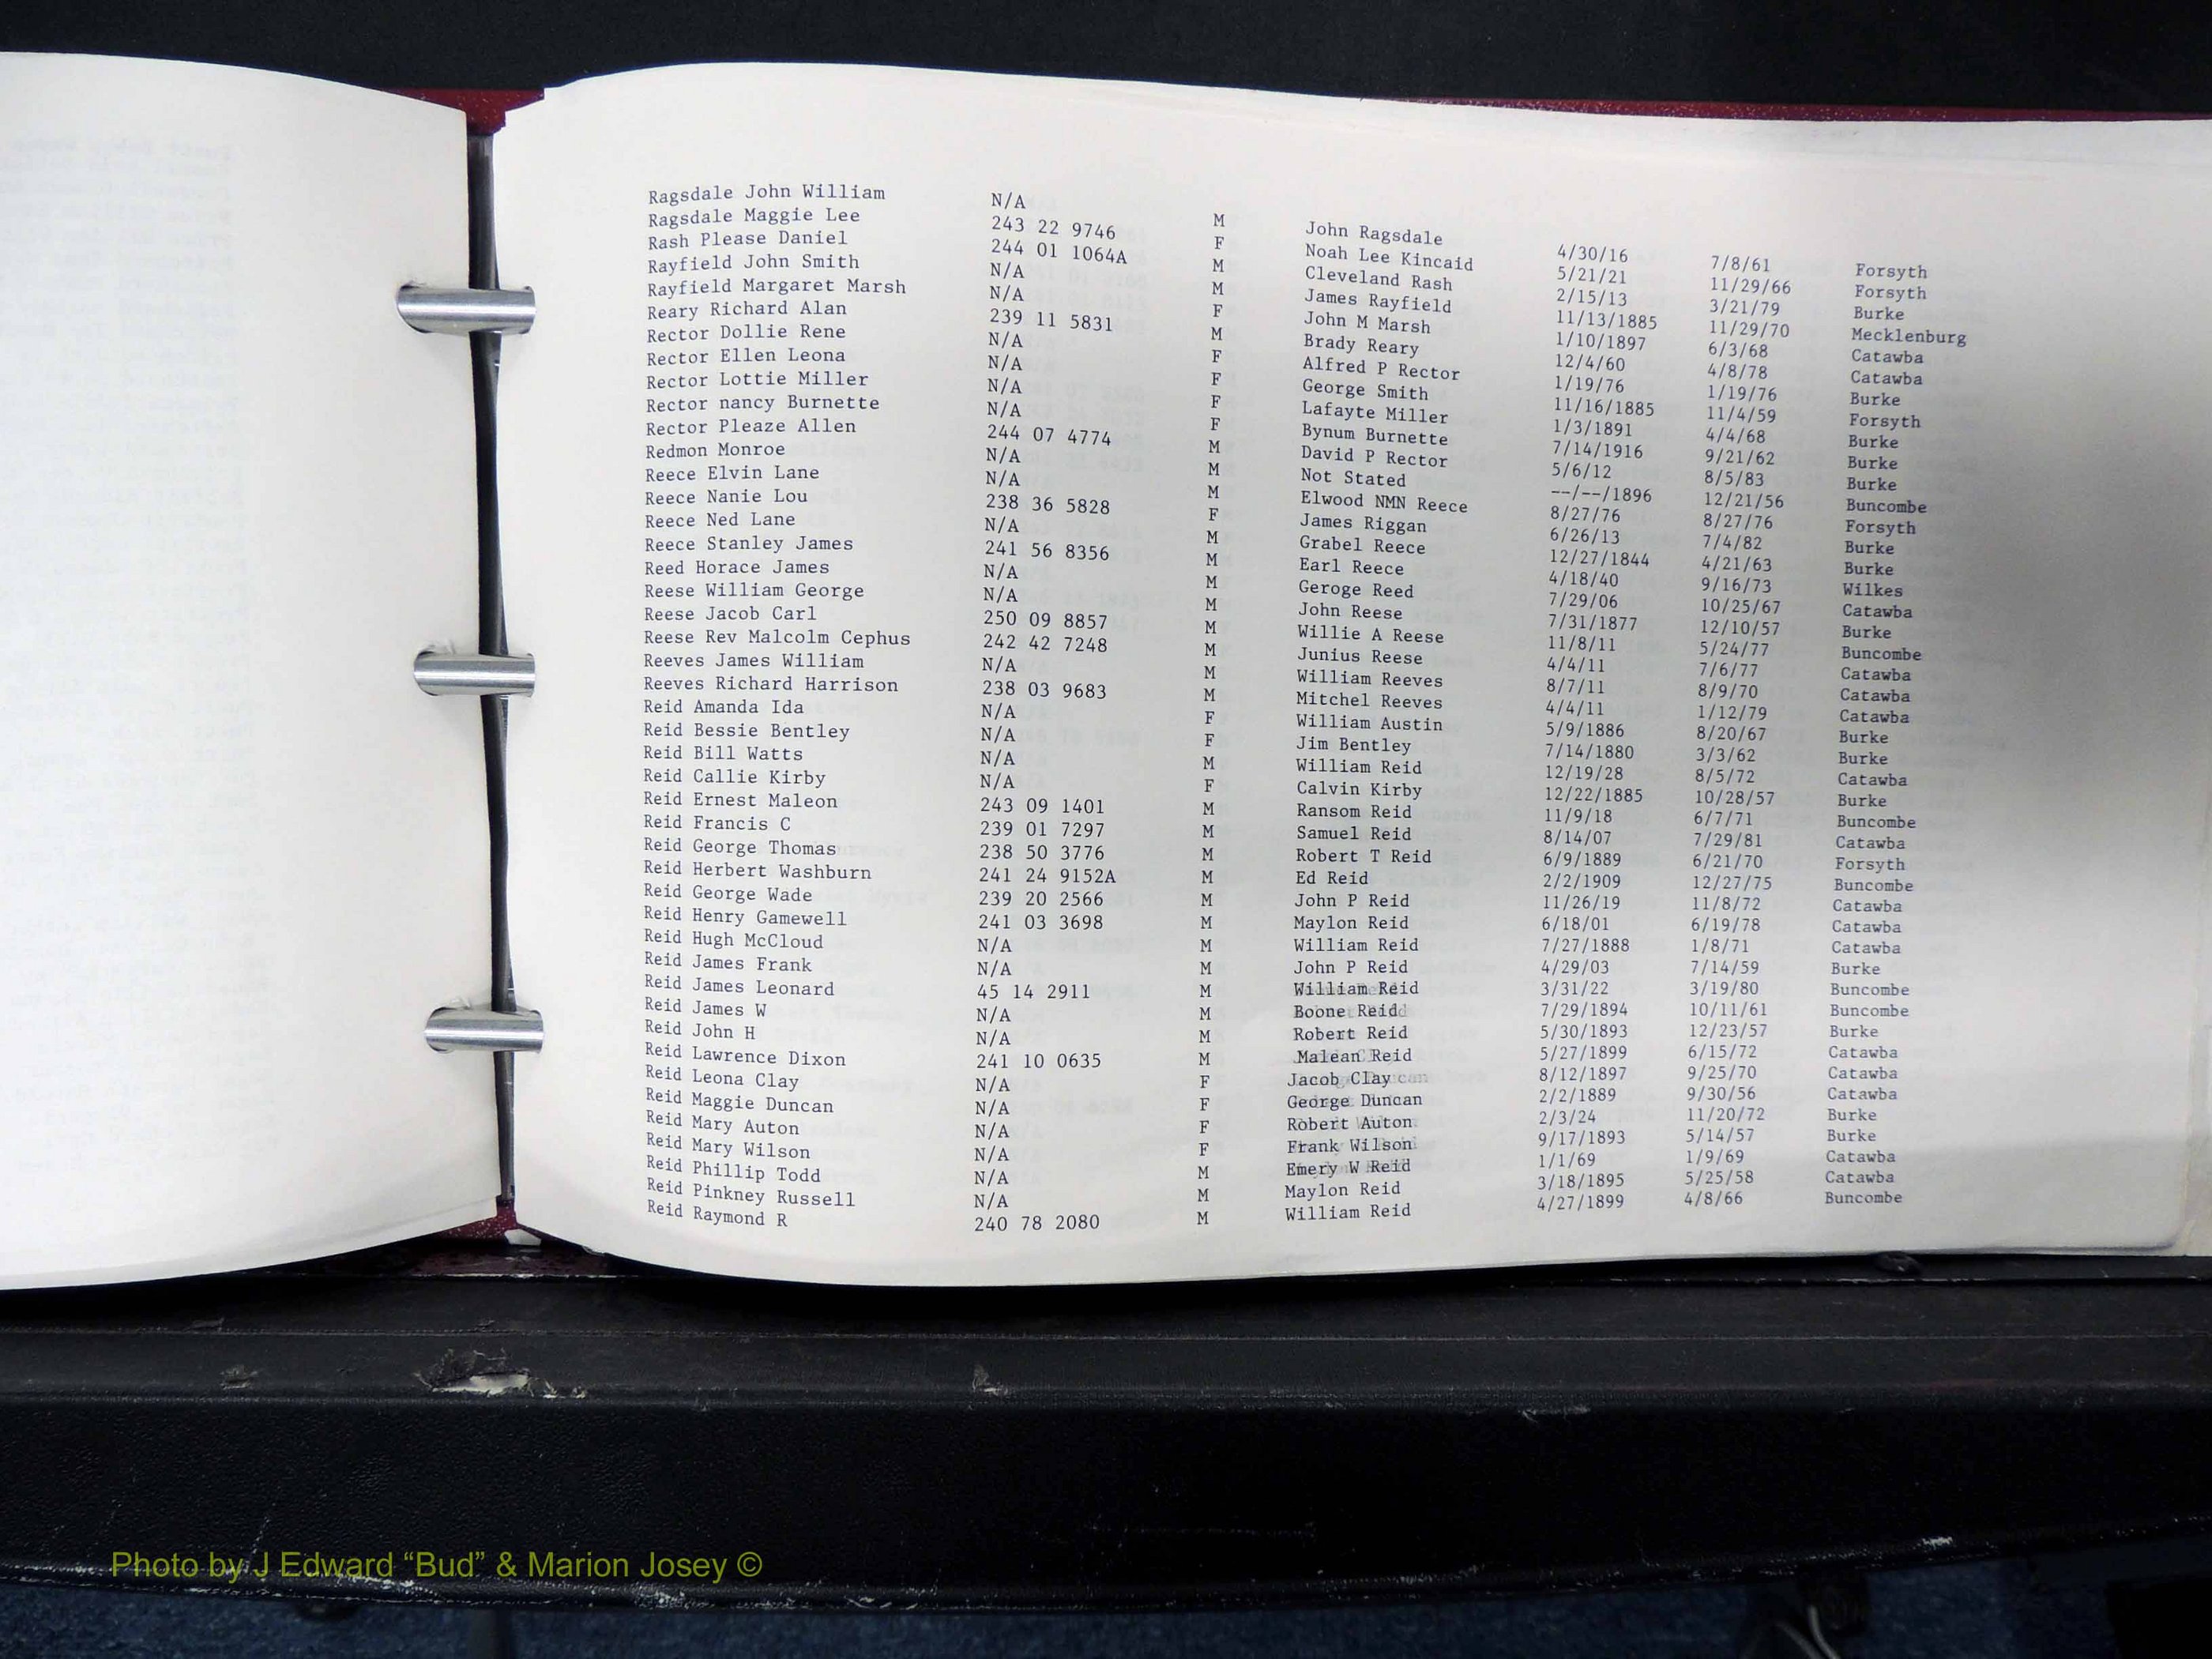 Ragsdale John William N/A M John Ragsdale 4/30/16 7/8/61 Forsyth
Ragsdale Maggie Lee 243 22 9746 F Noah Lee Kincaid 5/21/21 11/29/66 Forsyth
Rash Please Daniel 244 01 1064A M Cleveland Rash 2/15/13 3/21/79 Burke
Rayfield John Smith N/A M James Rayfield 11/13/1885 11/29/70 Mecklenburg
Rayfield Margaret Marsh N/A F John M Marsh 1/10/1897 6/3/68 Catawba
Reary Richard Alan 239 11 5831 M Brady Reary 12/4/60 4/8/78 Catawba
Rector Dollie Rene N/A F Alfred P Rector 1/19/76 1/19/76 Burke
Rector Ellen Leona N/A F George Smith 11/16/1885 11/4/59 Forsyth
Rector Lottie Miller N/A F Lafayte Miller 1/3/1891 4/4/68 Burke
Rector nancy Burnette N/A F Bynum Burnette 7/14/1916 9/21/62 Burke
Rector Pleaze Allen 244 07 4774 M David P Rector 5/6/12 8/5/83 Burke
Redmon Monroe N/A M Not Stated --/--/1896 12/21/56 Buncombe
Reece Elvin Lane N/A M Elwood NMN Reece 8/27/76 8/27/76 Forsyth
Reece Nanie Lou 238 36 5828 F James Riggan 6/26/13 7/4/82 Burke
Reece Ned Lane N/A M Grabel Reece 12/27/1844 4/21/63 Burke
Reece Stanley James 241 56 8356 M Earl Reece 4/18/40 9/16/73 Wilkes
Reed Horace James N/A M Geroge Reed 7/29/06 10/25/67 Catawba
Reese William George N/A M John Reese 7/31/1877 12/10/57 Burke
Reese Jacob Carl 250 09 8857 M Willie A Reese 11/8/11 5/24/77 Buncombe
Reese Rev Malcolm Cephus 242 42 7248 M Junius Reese 4/4/11 7/6/77 Catawba
Reeves James William N/A M William Reeves 8/7/11 8/9/70 Catawba
Reeves Richard Harrison 238 03 9683 M Mitchel Reeves 4/4/11 1/12/79 Catawba
Reid Amanda Ida N/A F William Austin 5/9/1886 8/20/67 Burke
Reid Bessie Bentley N/A F Jim Bentley 7/14/1880 3/3/62 Burke
Reid Bill Watts N/A M William Reid 12/19/28 8/5/72 Catawba
Reid Callie Kirby N/A F Calvin Kirby 12/22/1885 10/28/57 Burke
Reid Ernest Maleon 243 09 1401 M Ransom Reid 11/9/18 6/7/71 Buncombe
Reid Francis C 239 01 7297 M Samuel Reid 8/14/07 7/29/81 Catawba
Reid George Thomas 238 50 3776 M Robert T Reid 6/9/1889 6/21/70 Forsyth
Reid Herbert Washburn 241 24 9152A M Ed Reid 2/2/1909 12/27/75 Buncombe
Reid George Wade 239 20 2566 M John P Reid 11/26/19 11/8/72 Catawba
Reid Henry Gamewell 241 03 3698 M Maylon Reid 6/18/01 6/19/78 Catawba
Reid Hugh McCloud N/A M William Reid 7/27/1888 1/8/71 Catawba
Reid James Frank N/A M John P Reid 4/29/03 7/14/59 Burke
Reid James Leonard 45 14 2911 M William Reid 3/31/22 3/19/80 Buncombe
Reid James W N/A M Boone Reid 7/29/1894 10/11/61 Buncombe
Reid John H N/A M Robert Reid 5/30/1893 12/23/57 Burke
Reid Lawrence Dixon 241 10 0635 M Malean Reid 5/27/1899 6/15/72 Catawba
Reid Leona Clay N/A F Jacob Clay 8/12/1897 9/25/70 Catawba
Reid Maggie Duncan N/A F George Duncan 2/2/1889 9/30/56 Catawba
Reid Mary Auton N/A F Robert Auton 2/3/24 11/20/72 Burke
Reid Mary Wilson N/A F Frank Wilson 9/17/1893 5/14/57 Burke
Reid Phillip Todd N/A M Emery W Reid 1/1/69 1/9/69 Catawba
Reid Pinkney Russell N/A M Maylon Reid 3/18/1895 5/25/58 Catawba
Reid Raymond R 240 78 2080 M William Reid 4/27/1899 4/8/66 Buncombe
Photo by J Edward “Bud” & Marion Josey ©